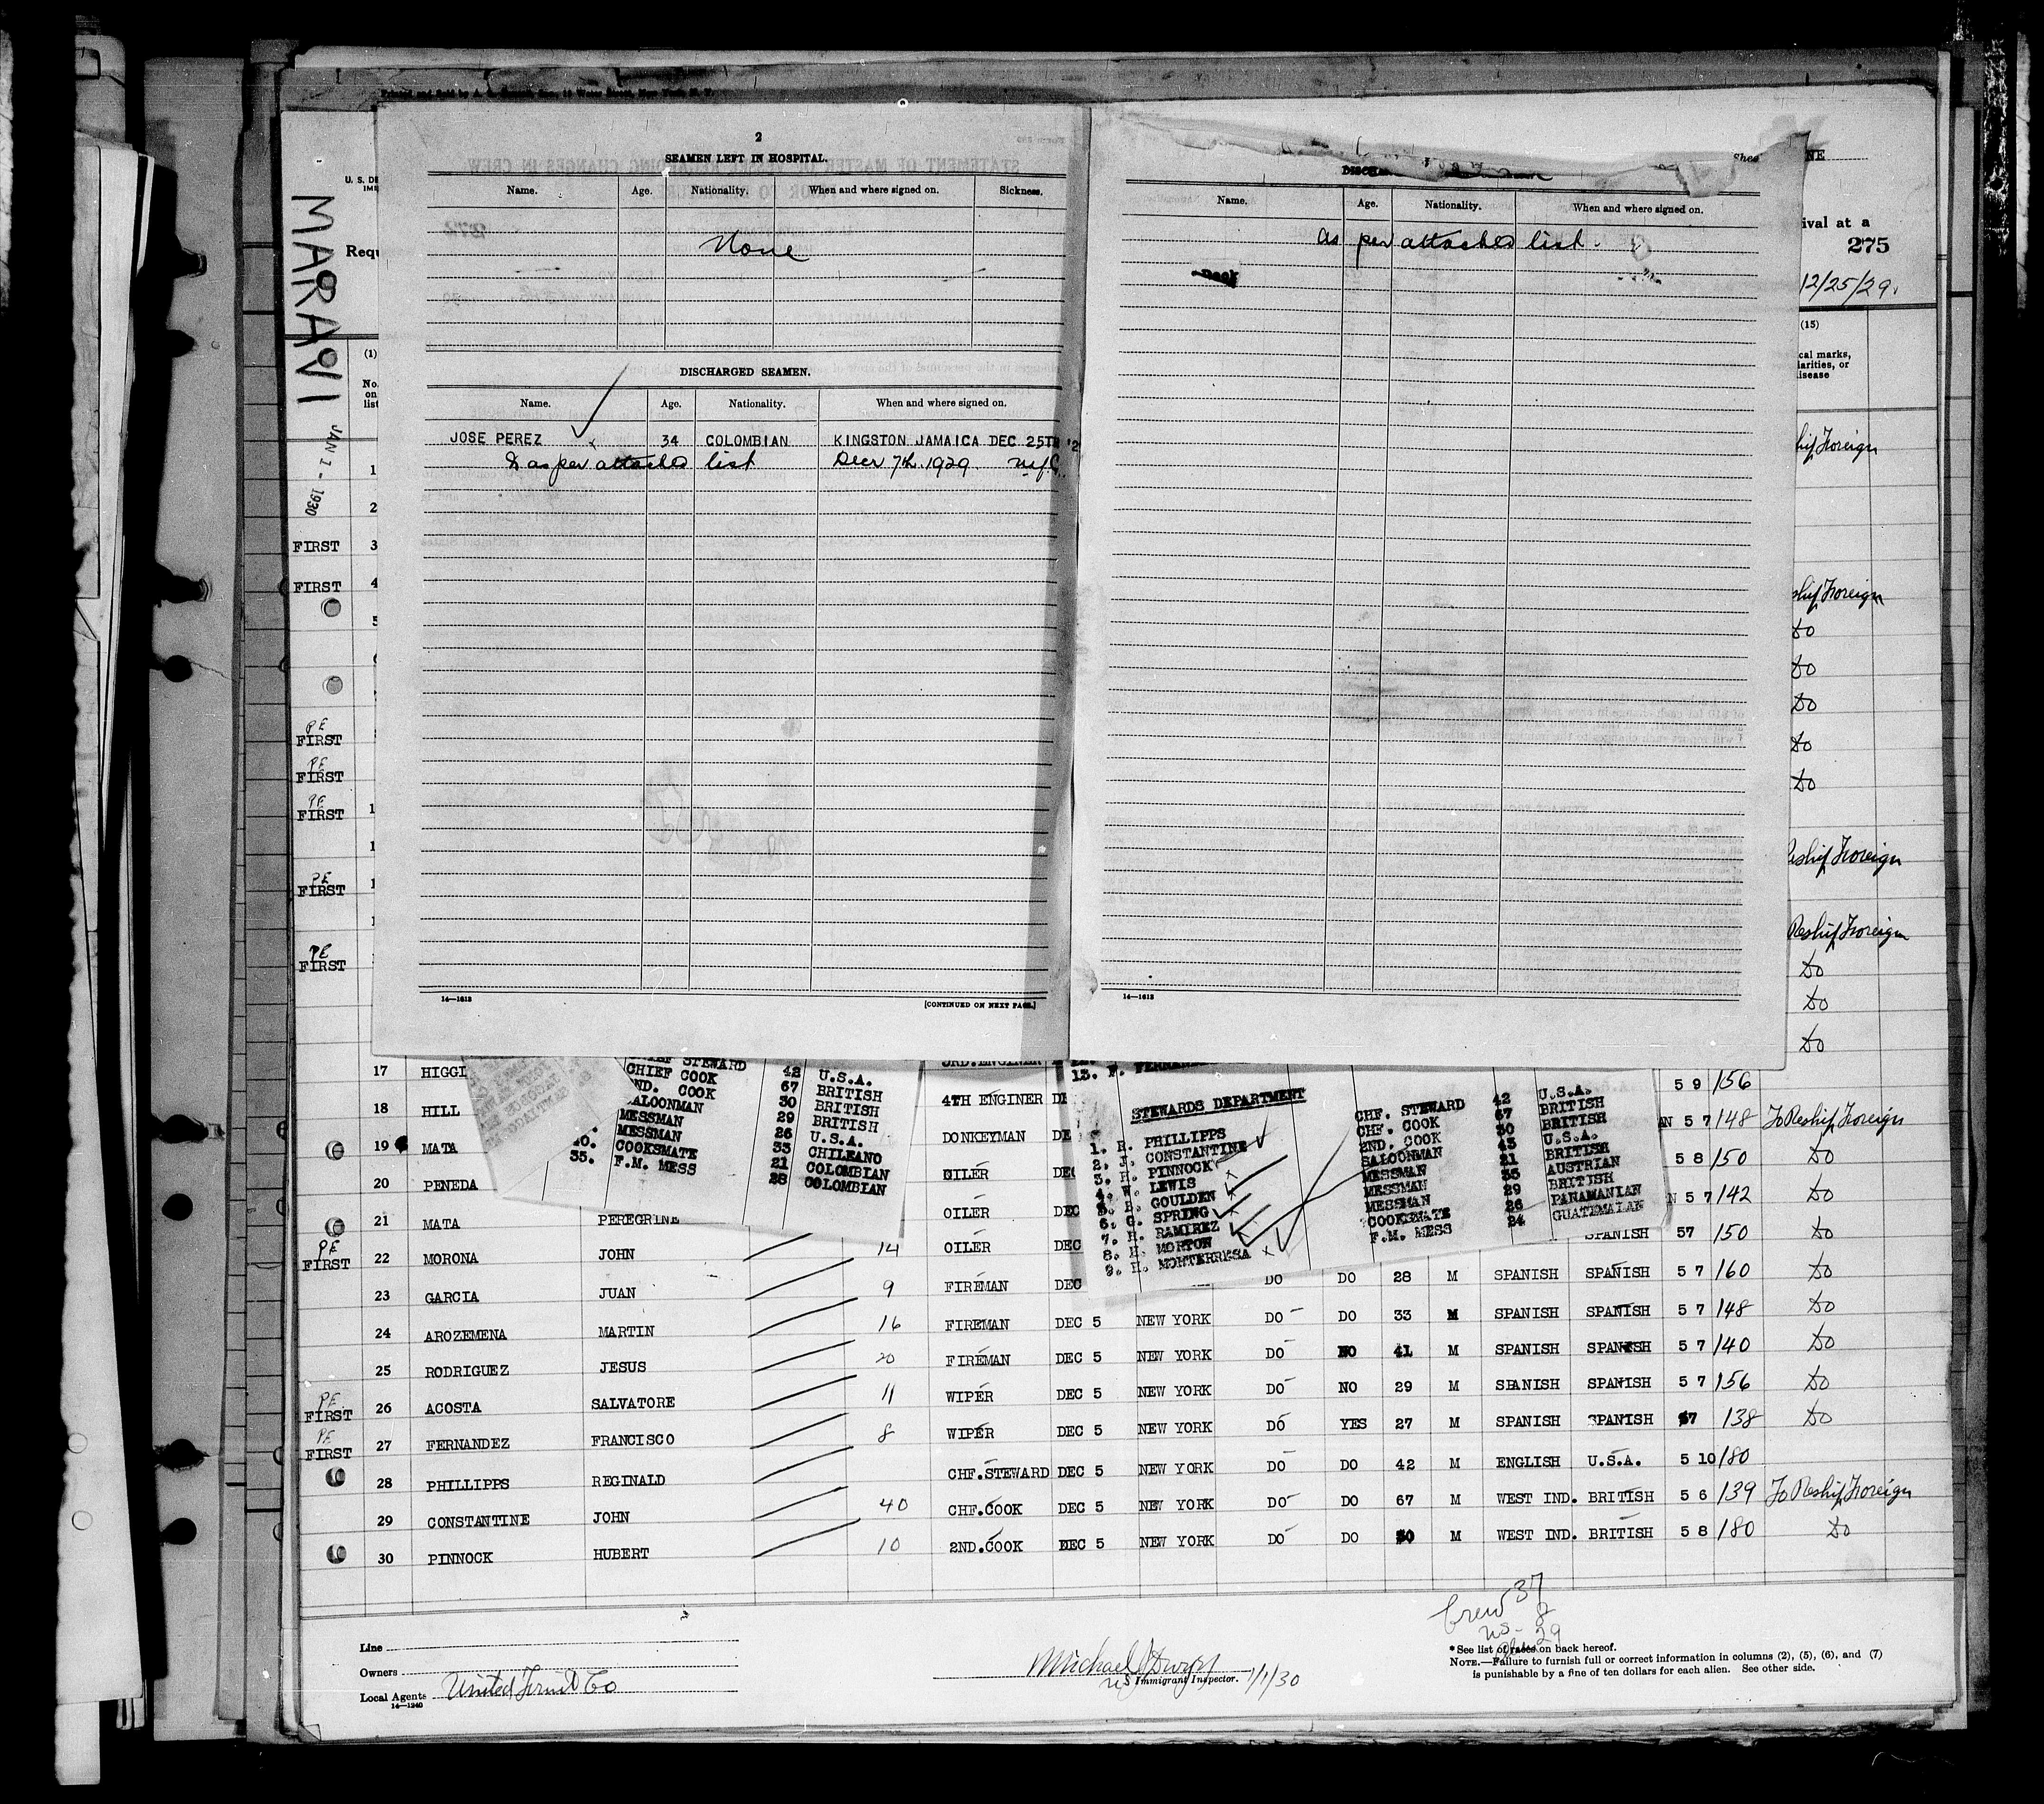 2
SEAMEN LEFT IN HOSPITAL.
Name. Age. Nationality. When and where signed on. Sickness.
None
DISCHARGED SEAMEN.
Name. Age. Nationality. When and where signed on.
JOSE PEREZ 34 COLOMBIAN KINGSTON JAMAICA DEC 25TH '2
& as per attached list Decr 7th. 1929
14—1613 [CONTINUED ON NEXT PAGE.]
Name. Age. Nationality. When and where signed on.
As per attached list.
14—1613
MARAVI
JAN 1 - 1930
U. S. DE
Requ
(1)
No.
on
list
1
2
FIRST 3
FIRST 4
5
PE
FIRST
PE
FIRST
PE
FIRST 1
1
PE
FIRST 1
PE
FIRST
ival at a
275
12/25/29.
(15)
cal marks,
larities, or
isease
hip Foreign
ship Foreign
Do
Do
Do
Do
Do
Reship Foreign
Reship Foreign
Do
Do
Do
CHIEF STEWARD 42 U.S.A.
CHIEF COOK 67 BRITISH
ND. COOK 30 BRITISH
SALOONMAN 29 BRITISH
MESSMAN 26 U.S.A.
MESSMAN 33 CHILEANO
COOKSMATE 21 COLOMBIAN
35. F.M. MESS 28 COLOMBIAN
STEWARDS DEPARTMENT
1. R. PHILLIPPS CHF. STEWARD 42 U.S.A.
2. J. CONSTANTINE CHF. COOK 67 BRITISH
3. H. PINNOCK 2ND. COOK 30 BRITISH
4. W. LEWIS SALOONMAN 43 U.S.A.
5. B. GOULDEN MESSMAN 21 BRITISH
6. G. SPRING MESSMAN 35 AUSTRIAN
7. R. RAMIREZ MESSMAN 29 BRITISH
8. H. MORTON COOKSMATE 26 PANAMANIAN
9. H. MONTERRESA F.M. MESS 24 GUATEMALAN
17 HIGGI 3RD.ENGINER 5 9 156
18 HILL 4TH ENGINER N 5 7 148 To Reship Foreign
19 MATA DONKEYMAN DE 5 8 150 Do
20 PENEDA OILER DEC N 5 7 142 Do
21 MATA PEREGRINE OILER DEC SPANISH 57 150 Do
PE
FIRST 22 MORONA JOHN 14 OILER DEC DO DO 28 M SPANISH SPANISH 5 7 160 Do
23 GARCIA JUAN 9 FIREMAN DEC 5 NEW YORK DO DO 33 M SPANISH SPANISH 5 7 148 Do
24 AROZEMENA MARTIN 16 FIREMAN DEC 5 NEW YORK DO NO 41 M SPANISH SPANISH 5 7 140 Do
25 RODRIGUEZ JESUS 20 FIREMAN DEC 5 NEW YORK DO NO 29 M SPANISH SPANISH 5 7 156 Do
PE
FIRST 26 ACOSTA SALVATORE 11 WIPER DEC 5 NEW YORK DO YES 27 M SPANISH SPANISH 57 138 Do
PE
FIRST 27 FERNANDEZ FRANCISCO 8 WIPER DEC 5
28 PHILLIPPS REGINALD CHF.STEWARD DEC 5 NEW YORK DO DO 42 M ENGLISH U.S.A. 5 10 180
29 CONSTANTINE JOHN 40 CHF.COOK DEC 5 NEW YORK DO DO 67 M WEST IND. BRITISH 5 6 139 To Reship Foreign
30 PINNOCK HUBERT 10 2ND.COOK DEC 5 NEW YORK DO DO 30 M WEST IND. BRITISH 5 8 180 Do
Crew 37
US - 8
29
Line
Owners
Local Agents United Fruit Co
14—1240
Michael
US Immigrant Inspector. 1/1/30
*See list of races on back hereof.
NOTE.—Failure to furnish full or correct information in columns (2), (5), (6), and (7)
is punishable by a fine of ten dollars for each alien. See other side.